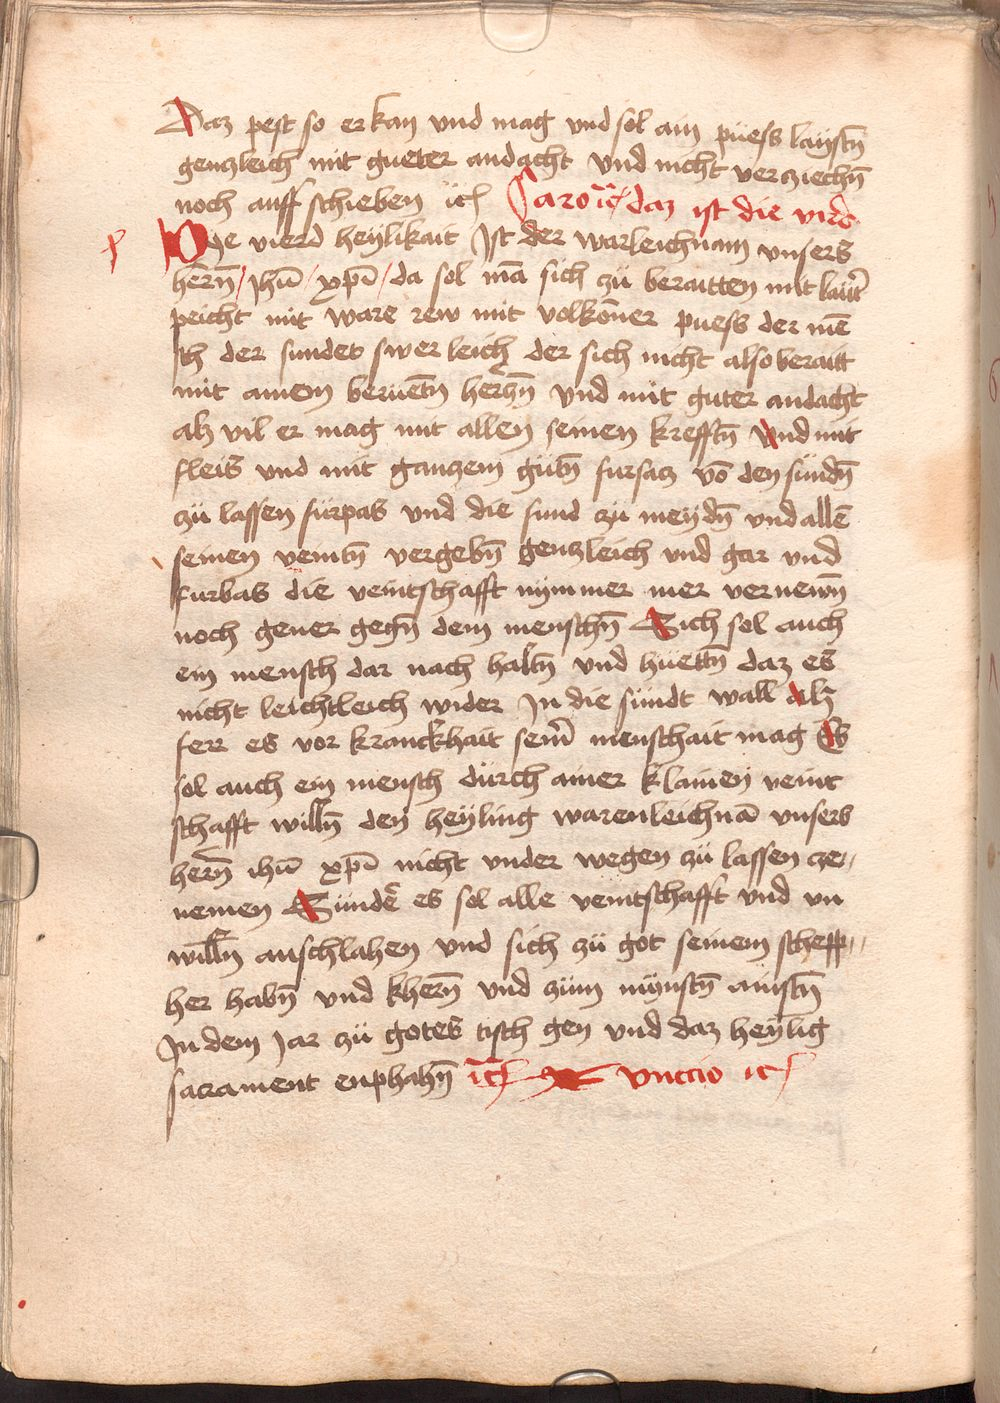 Daz pest so er kan vnd mag vnd sol ain püess laystn̄
genczleich mit gueter andacht vnd nicht verziechn̄
noch auff schieben ꝛc̄ Caro ꝛc̄ daz ist die vird
Die vierd heylikait Ist der warleichnam vnsers
herrn̄ / Jhū / xp̄i / da sol mā sich zü beraitten mit lautr̄
peicht mit ware rew mit volkōner puess der mē
sch der sundet swerleich der sich nicht also beraitt
mit ainem beruetn̄ herczn̄ vnd mit guter andacht
alz vil er mag mit allen seinen krefftn̄ Vnd mit
fleis vnd mit ganczem gütn̄ fursacz vō den sündn̄
zü lassen fürpas vnd die sund zü meydn̄ vnd allē
seinen veintn̄ vergebn̄ genczleich vnd gar vnd
furbas die veintschafft nymmer mer vernewn̄
noch gener gegn̄ dem menschn̄ Sich sol auch
ein mensch dar nach haltn̄ vnd hüettn̄ daz es
nicht leichtleich wider In die sündt wall alz
ferr es vor kranckhait seinr̄ menschait mag Es
sol auch ein mensch durch ainer klainen veint
schafft willn̄ den heyling warenleichnā vnsers
herrn̄ ihū xp̄i nicht vnder wegen zü lassen ze//
nemen Sünder̄ es sol alle veintschafft vnd vn
willn̄ auschlahen vnd sich zü got seinem schepp//
her habn̄ vnd khern̄ vnd zum mynstn̄ ainstn̄
In dem Jar zü gotes tisch gen vnd daz heylig
sacrament enphahn̄ ꝛc̄ Vnccio ꝛc